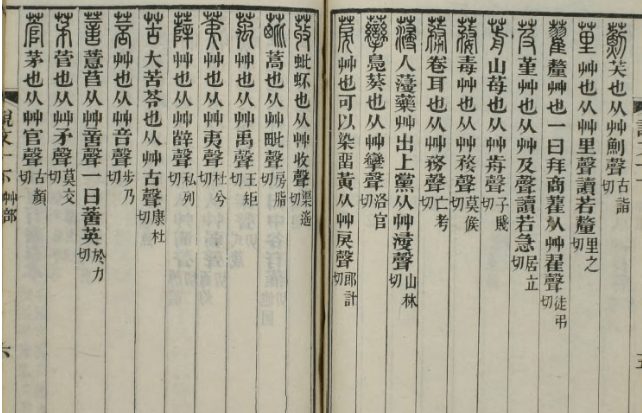 薊芺也从艸魝聲古詣切
荲艸也从艸里聲讀若釐里之切
藋釐艸也一曰拜商藋从艸翟聲徒弔切
芨堇艸也从艸及聲讀若急居立切
葥山莓也从艸歬聲子賤切
蓩毒艸也从艸婺聲莫候切
蓩卷耳也从艸務聲亡考切
薓人薓藥艸出上黨从艸浸聲山林切
虊鳧葵也从艸攣聲洛官切
莀艸也可以染留黃从艸戾聲郎計切
荍蚍衃也从艸收聲渠遙切
蓖蒿也从艸毗聲房脂切
萭艸也从艸禹聲王矩切
荑艸也从艸夷聲杜兮切
薛艸也从艸辥聲私列切
苦大苦苓也从艸古聲康杜切
菩艸也从艸音聲步乃切
薏薏苢从艸啻聲一曰薏英於力切
茅菅也从艸矛聲莫交切
菅茅也从艸官聲古顏切
說文一下 艸部 六